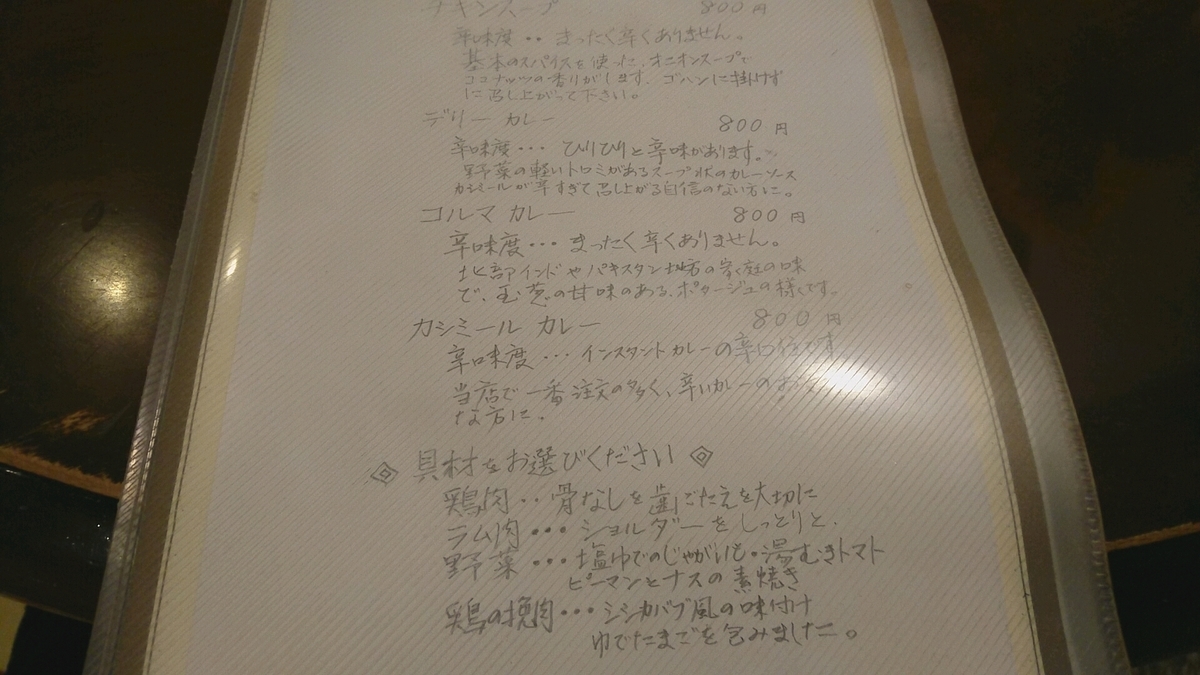 チキンスープ 800円
辛味度・・まったく辛くありません。
基本のスパイスを使った、オニオンスープで
ココナッツの香りがします、ゴハンに掛けず
に召し上がって下さい。
デリー カレー 800円
辛味度・・・ ひりひりと辛味があります。
野菜の軽いトロミがあるスープ状のカレーソース
カシミールが辛すぎて召し上がる自信のない方に。
コルマ カレー 800円
辛味度・・・まったく辛くありません。
北部インドやパキスタン地方の家庭の味
で、玉葱の甘味のある、ポタージュの様です。
カシミール カレー 800円
辛味度・・・インスタントカレーの辛口
当店で一番注文の多く、辛いカレーの
な方に、
◈ 具材をお選びください ◈
鶏肉・・骨なしを歯ごたえを大切に
ラム肉・・・ショルダーをしっとりと、
野菜・・・塩ゆでのじゃがいも・湯むきトマト
ピーマンとナスの素焼き
鶏の挽肉・・・シシカバブ風の味付け
ゆでたまごを包みました。